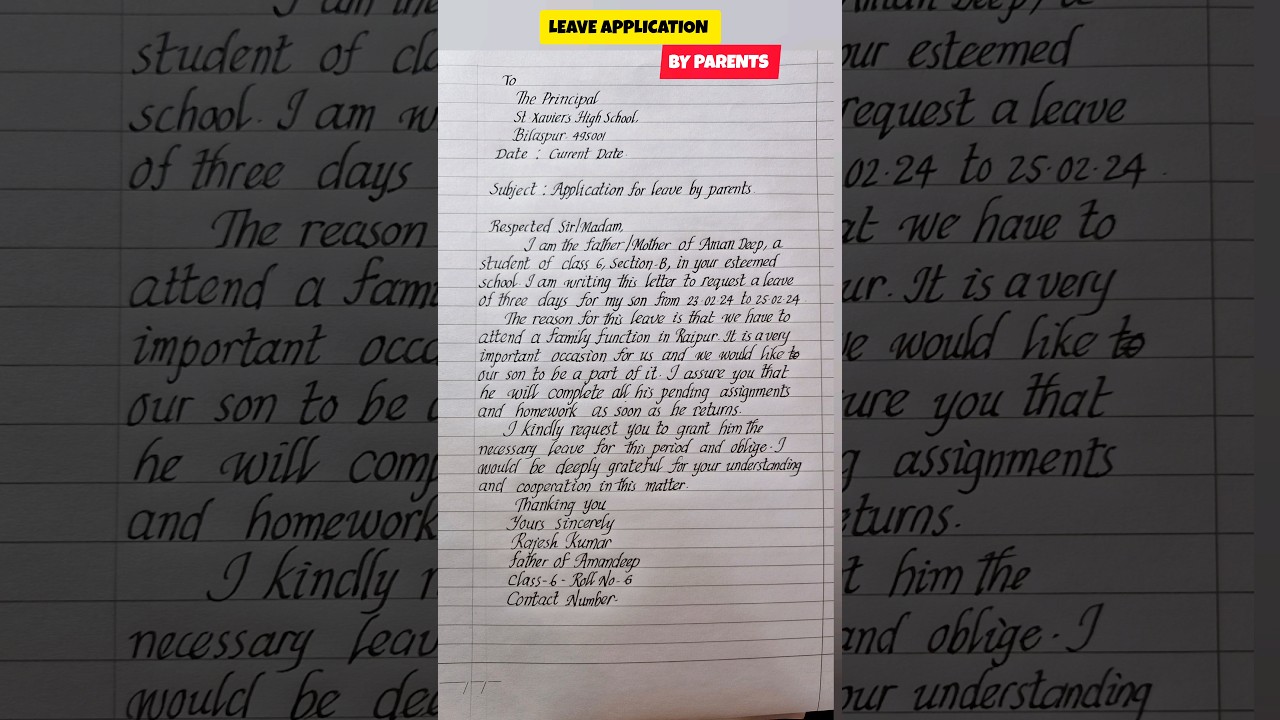 LEAVE APPLICATION
BY PARENTS
To
The Principal
St Xaviers High School,
Bilaspur 495001
Date : Current Date
Subject : Application for leave by parents
Respected Sir/Madam,
I am the father/Mother of Aman Deep, a
student of class 6, Section-B, in your esteemed
school. I am writing this letter to request a leave
of three days for my son from 23.02.24 to 25.02.24
The reason for this leave is that we have to
attend a family function in Raipur. It is a very
important occasion for us and we would like to
our son to be a part of it. I assure you that
he will complete all his pending assignments
and homework as soon as he returns.
I kindly request you to grant him the
necessary leave for this period and oblige. I
would be deeply grateful for your understanding
and cooperation in this matter.
Thanking you
Yours sincerely
Rajesh Kumar
father of Amandeep
Class-6 - Roll No-6
Contact Number-